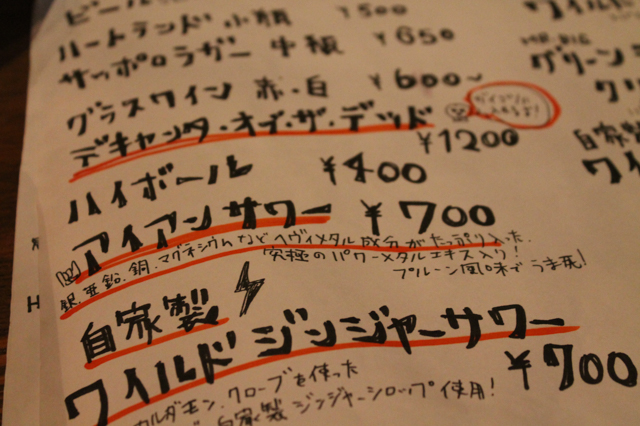 ビール ¥500
ハートランド 小瓶
サッポロラガー 中瓶 ¥650
グラスワイン 赤・白 ¥600~
デキャンタ・オブ・ザ・デッド ¥1200
ハイボール ¥400
アイアンサワー ¥700
銀、亜鉛、銅、マグネシウムなどヘヴィメタル成分がたっぷり入った
究極のパワーメタルエキス入り!
プルーン風味でうま死!
自家製
ワイルドジンジャーサワー ¥700
カルダモン、クローブを使った
自家製ジンジャーシロップ使用!
グリーン
自家製
ワイ